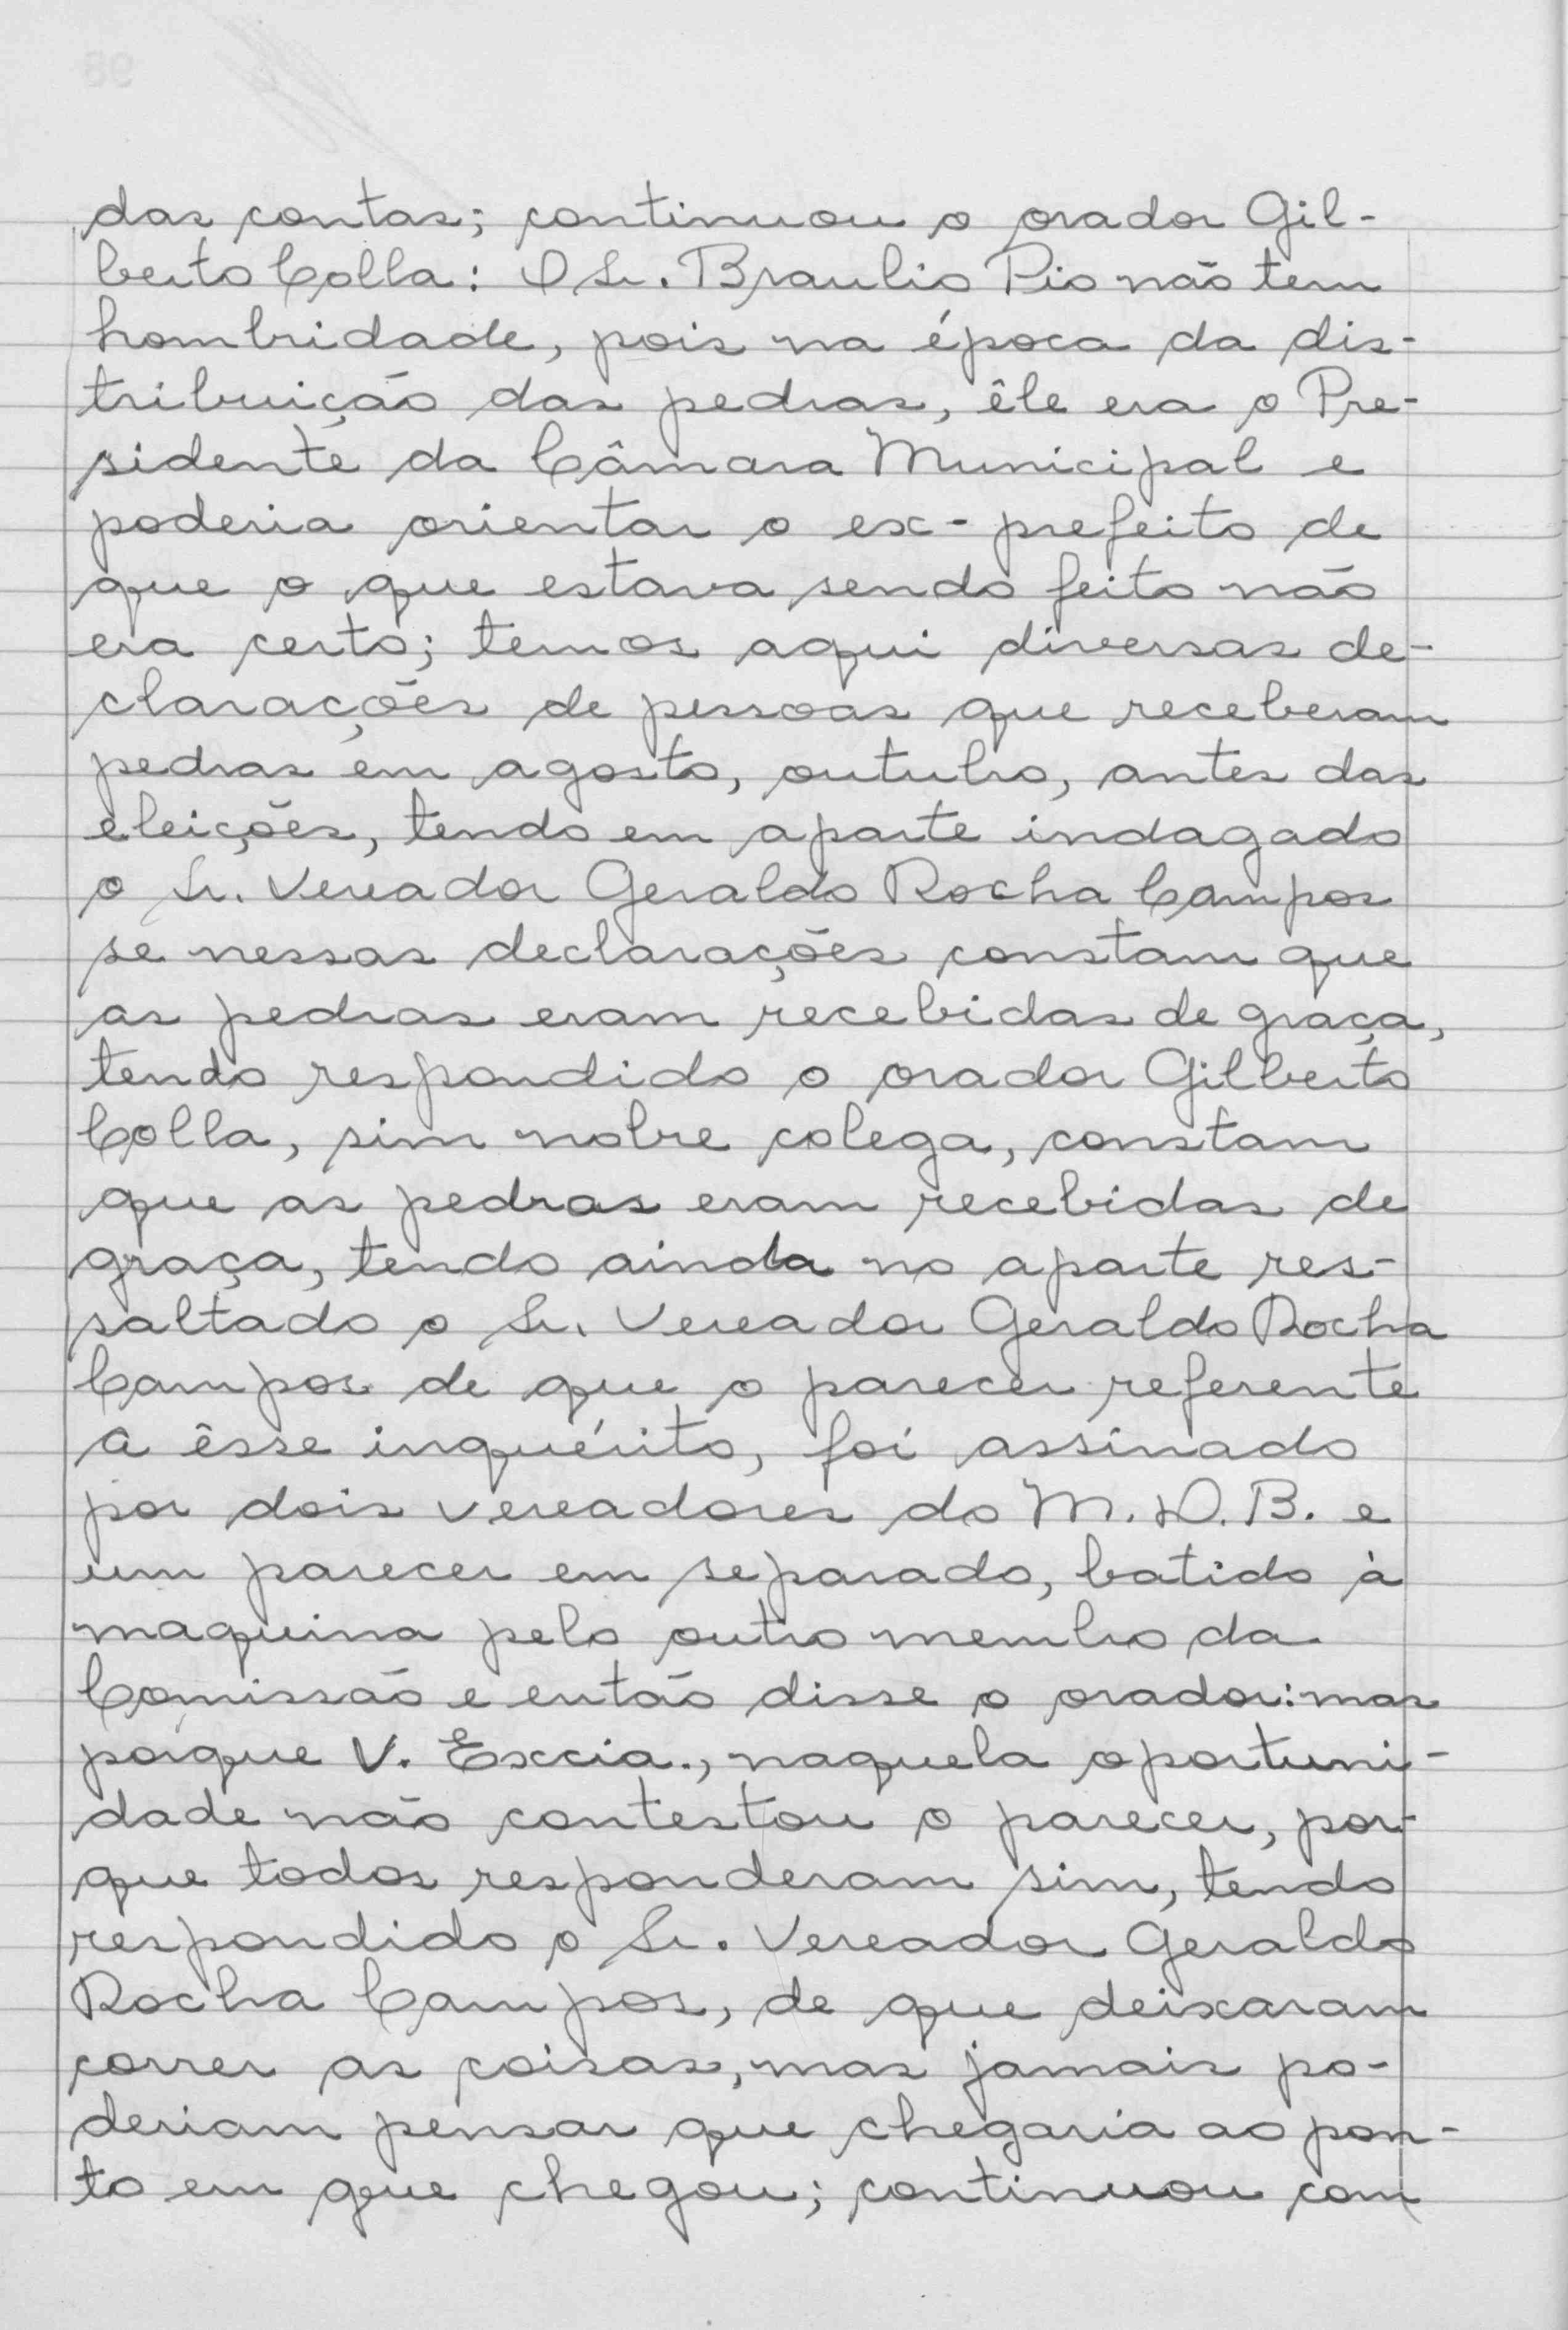 das contas; continuou o orador Gil-
berto Colla: O Sr. Braulio Pio não tem
hombridade, pois na época da dis-
tribuição das pedras, êle era o Pre-
sidente da Câmara Municipal e
poderia orientar o ex-prefeito de
que o que estava sendo feito não
era certo; temos aqui diversas de-
clarações de pessoas que receberam
pedras em agosto, outubro, antes das
eleições, tendo em aparte indagado
o Sr. Vereador Geraldo Rocha Campos
se nessas declarações constam que
as pedras eram recebidas de graça,
tendo respondido o orador Gilberto
Colla, sim nobre colega, constam
que as pedras eram recebidas de
graça, tendo ainda no aparte res-
saltado o Sr. Vereador Geraldo Rocha
Campos de que o parecer referente
a êsse inquérito, foi assinado
por dois vereadores do M.D.B. e
um parecer em separado, batido à
maquina pelo outro membro da
Comissão e então disse o orador: mas
porque V. Excia., naquela oportuni-
dade não contestou o parecer, por-
que todos responderam sim, tendo
respondido o Sr. Vereador Geraldo
Rocha Campos, de que deixaram
correr as coisas, mas jamais po-
deriam pensar que chegaria ao pon-
to em que chegou; continuou com